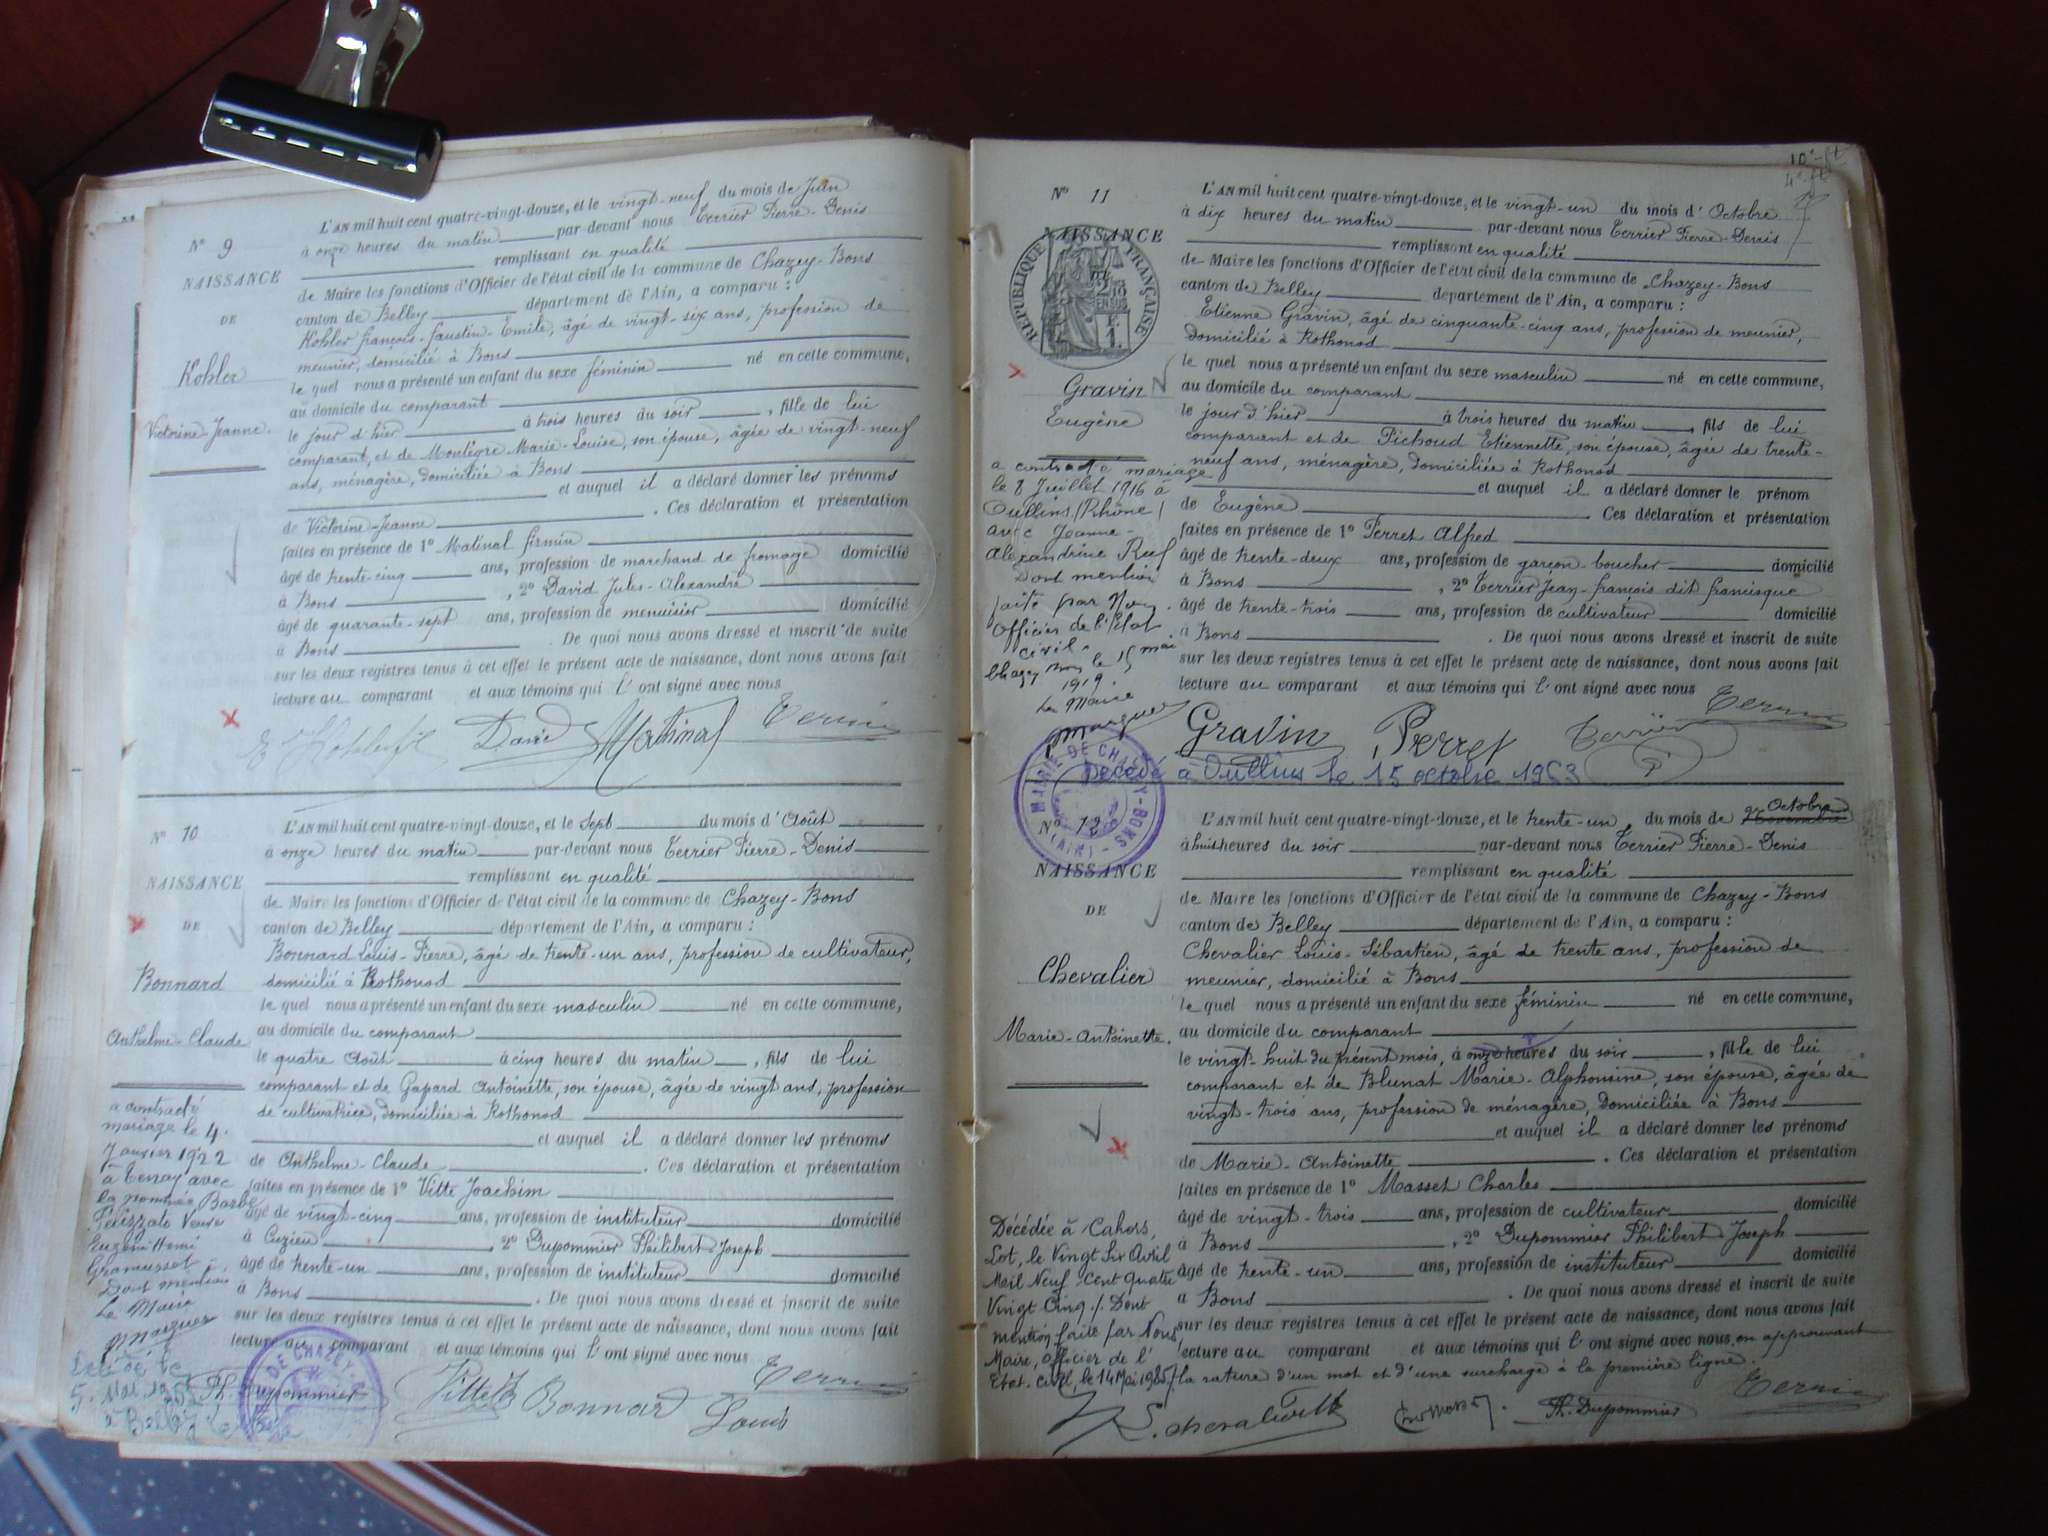 N° 9
NAISSANCE
DE
Kohler
Victorine-Jeanne
L'AN mil huit cent quatre-vingt-douze, et le vingt-neuf du mois de Juin
à onze heures du matin par-devant nous Terrier Pierre-Denis
remplissant en qualité
de Maire les fonctions d'Officier de l'état civil de la commune de Chazey-Bons
canton de Belley département de l'Ain, a comparu :
Kohler françois-faustin-Emile, âgé de vingt-six ans, profession de
meunier, domicilié à Bons
le quel nous a présenté un enfant du sexe féminin né en cette commune,
au domicile du comparant
le jour d'hier à trois heures du soir, fille de lui
comparant, et de Montègre Marie-Louise, son épouse, âgée de vingt-neuf
ans, ménagère, domiciliée à Bons
et auquel il a déclaré donner les prénoms
de Victorine-Jeanne. Ces déclaration et présentation
faites en présence de 1° Matinal firmin
âgé de trente-cinq ans, profession de marchand de fromage domicilié
à Bons, 2° David Jules-Alexandre
âgé de quarante-sept ans, profession de menuisier domicilié
à Bons. De quoi nous avons dressé et inscrit de suite
sur les deux registres tenus à cet effet le présent acte de naissance, dont nous avons fait
lecture au comparant et aux témoins qui l'ont signé avec nous
David Matinal Terrier
N° 10
NAISSANCE
DE
Bonnard
Anthelme-Claude
a contracté
mariage le 4
Janvier 1922
à Tenay avec
la nommée Barbe
Veuve
Gramusset
Dont mention
Le Maire
L'AN mil huit cent quatre-vingt-douze, et le Sept du mois d'Août
à onze heures du matin par-devant nous Terrier Pierre-Denis
remplissant en qualité
de Maire les fonctions d'Officier de l'état civil de la commune de Chazey-Bons
canton de Belley département de l'Ain, a comparu :
Bonnard Louis-Pierre, âgé de trente-un ans, profession de cultivateur,
domicilié à Rothonod
le quel nous a présenté un enfant du sexe masculin né en cette commune,
au domicile du comparant
le quatre Août à cinq heures du matin, fils de lui
comparant et de Gapard Antoinette, son épouse, âgée de vingt ans, profession
de cultivatrice, domiciliée à Rothonod
et auquel il a déclaré donner les prénoms
de Anthelme-Claude. Ces déclaration et présentation
faites en présence de 1° Vitte Joachim
âgé de vingt-cinq ans, profession de instituteur domicilié
à Cuzieu, 2° Dupommier Philibert Joseph
âgé de trente-un ans, profession de instituteur domicilié
à Bons. De quoi nous avons dressé et inscrit de suite
sur les deux registres tenus à cet effet le présent acte de naissance, dont nous avons fait
lecture au comparant et aux témoins qui l'ont signé avec nous
Décédé le
5 Mai
à Belley
DE CHAZEY
Ph. Dupommier Vitte J Bonnard Louis Terrier
N° 11
NAISSANCE
REPUBLIQUE FRANÇAISE
Gravin
Eugène
a contracté mariage
le 8 Juillet 1916 à
Oullins (Rhône)
avec Jeanne-
Alexandrine Ruf
Dont mention
faite par Nous
Officier de l'Etat
civil.
Chazey Bons le 15 mai
1919.
Le Maire
L'AN mil huit cent quatre-vingt-douze, et le vingt-un du mois d'Octobre
à dix heures du matin par-devant nous Terrier Pierre-Denis
remplissant en qualité
de Maire les fonctions d'Officier de l'état civil de la commune de Chazey-Bons
canton de Belley département de l'Ain, a comparu :
Etienne Gravin, âgé de cinquante-cinq ans, profession de meunier,
domicilié à Rothonod
le quel nous a présenté un enfant du sexe masculin né en cette commune,
au domicile du comparant
le jour d'hier à trois heures du matin, fils de lui
comparant et de Pichoud Etiennette, son épouse, âgée de trente-
neuf ans, ménagère, domiciliée à Rothonod
et auquel il a déclaré donner le prénom
de Eugène. Ces déclaration et présentation
faites en présence de 1° Perret Alfred
âgé de trente-deux ans, profession de garçon boucher domicilié
à Bons, 2° Terrier Jean-françois dit francisque
âgé de trente-trois ans, profession de cultivateur domicilié
à Bons. De quoi nous avons dressé et inscrit de suite
sur les deux registres tenus à cet effet le présent acte de naissance, dont nous avons fait
lecture au comparant et aux témoins qui l'ont signé avec nous
Gravin Perret Terrier Terrier
Décédé à Oullins le 15 octobre 1963
MAIRIE DE CHAZEY-BONS (AIN)
N° 12
NAISSANCE
DE
Chevalier
Marie-Antoinette.
Décédée à Cahors,
Lot, le Vingt Six Avril
Mil Neuf-Cent Quatre
Vingt Cinq./. Dont
mention faite par Nous,
Maire, Officier de l'
Etat-Civil, le 14 Mai 1985
L'AN mil huit cent quatre-vingt-douze, et le trente-un du mois de Octobre
à huit heures du soir par-devant nous Terrier Pierre-Denis
remplissant en qualité
de Maire les fonctions d'Officier de l'état civil de la commune de Chazey-Bons
canton de Belley département de l'Ain, a comparu :
Chevalier Louis-Sébastien, âgé de trente ans, profession de
meunier, domicilié à Bons
le quel nous a présenté un enfant du sexe féminin né en cette commune,
au domicile du comparant
le vingt-huit du présent mois, à onze heures du soir, fille de lui
comparant et de Blunat Marie-Alphonsine, son épouse, âgée de
vingt-trois ans, profession de ménagère, domiciliée à Bons
et auquel il a déclaré donner les prénoms
de Marie-Antoinette. Ces déclaration et présentation
faites en présence de 1° Masset Charles
âgé de vingt-trois ans, profession de cultivateur domicilié
à Bons, 2° Dupommier Philibert Joseph
âgé de trente-un ans, profession de instituteur domicilié
à Bons. De quoi nous avons dressé et inscrit de suite
sur les deux registres tenus à cet effet le présent acte de naissance, dont nous avons fait
lecture au comparant et aux témoins qui l'ont signé avec nous en approuvant
la rature d'un mot et d'une surcharge à la première ligne.
Ph. Dupommier Terrier